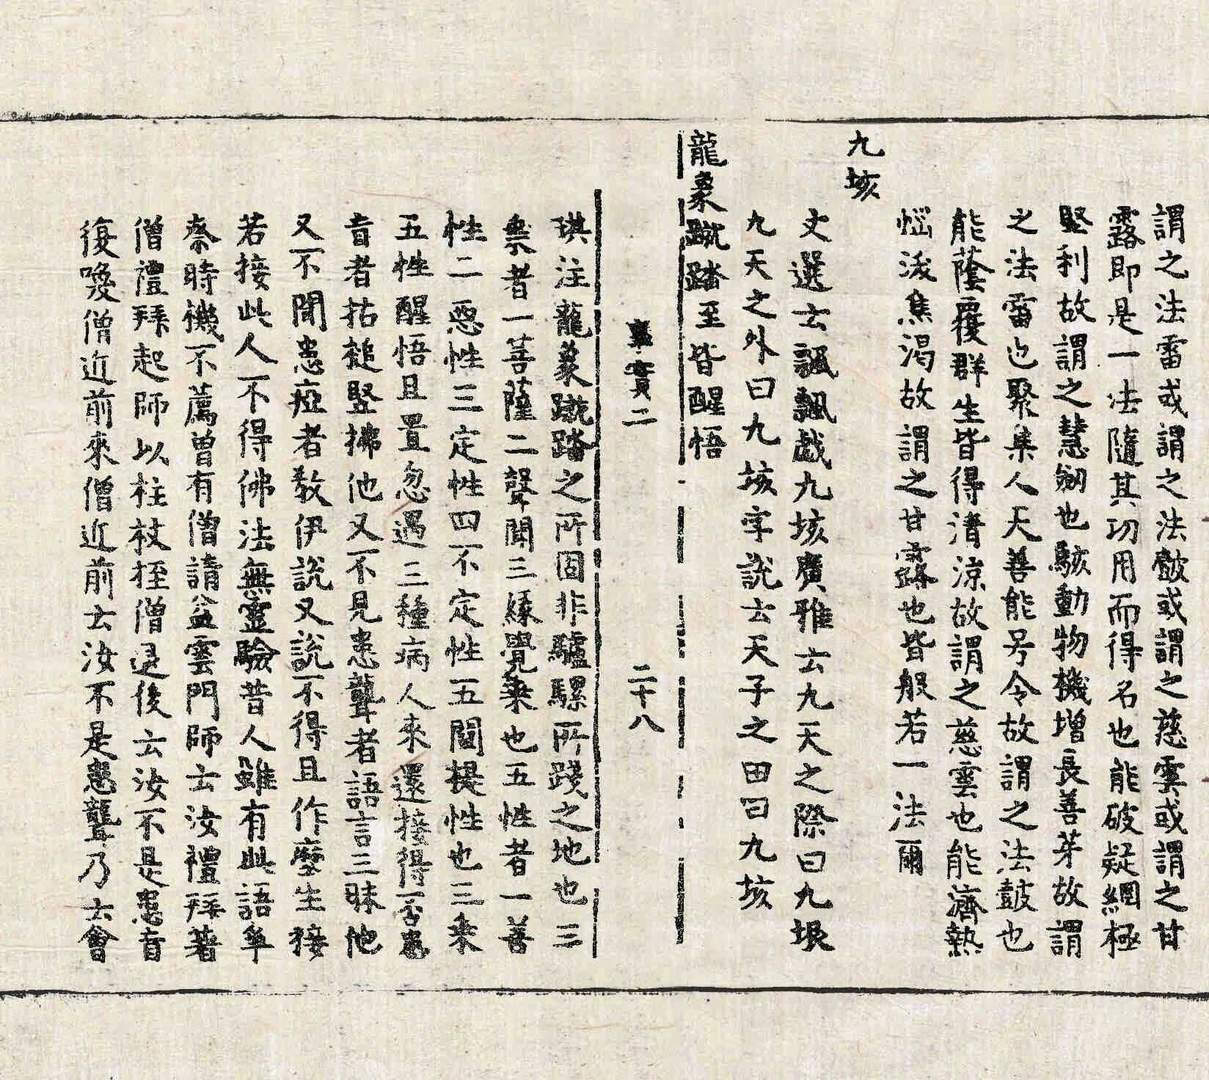 謂之法雷或謂之法皷或謂之慈雲或謂之甘
露即是一法隨其功用而得名也能破疑網極
堅利故謂之慧劒也駭動物機增長善芽故謂
之法雷也聚集人天善能号令故謂之法鼓也
能蔭覆群生皆得清凉故謂之慈雲也能濟熱
惱渙焦渴故謂之甘露也皆般若一法爾
九垓
文選云飄飄戲九垓廣雅云九天之際曰九垠
九天之外曰九垓字説云天子之田曰九垓
龍象蹴踏至皆醒悟
事實二
二十八
琪注龍象蹴踏之所固非驢騾所踐之地也三
乘者一菩薩二聲聞三緣覺乘也五性者一善
性二惡性三定性四不定性五闡提性也三乘
五性醒悟且置忽遇三種病人來還接得否患
盲者拈槌竪拂他又不見患聾者語言三昧他
又不聞患瘂者教伊説又説不得且作麼生接
若接此人不得佛法無靈驗昔人雖有此語争
柰時機不薦曽有僧請益雲門師云汝禮拜著
僧禮拜起師以柱杖挃僧退後云汝不是患盲
復喚僧近前來僧近前云汝不是患聾乃云會